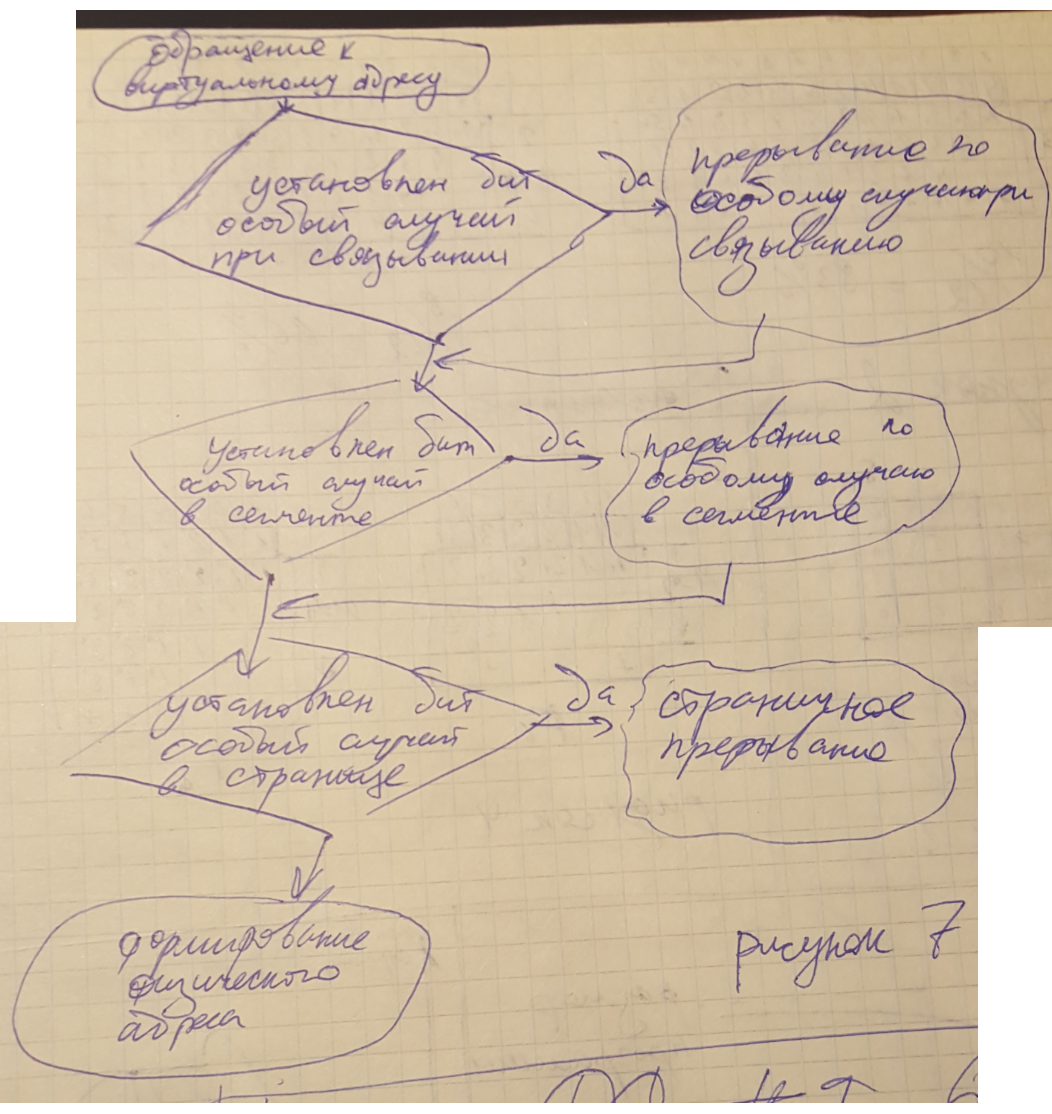 обращение к
виртуальному адресу
установлен бит
особый случай
при связывании
да
прерывание по
особому случаю при
связыванию
установлен бит
особый случай
в сегменте
да
прерывание по
особому случаю
в сегменте
установлен бит
особый случай
в странице
да
страничное
прерывание
формирование
физического
адреса
рисунок 7